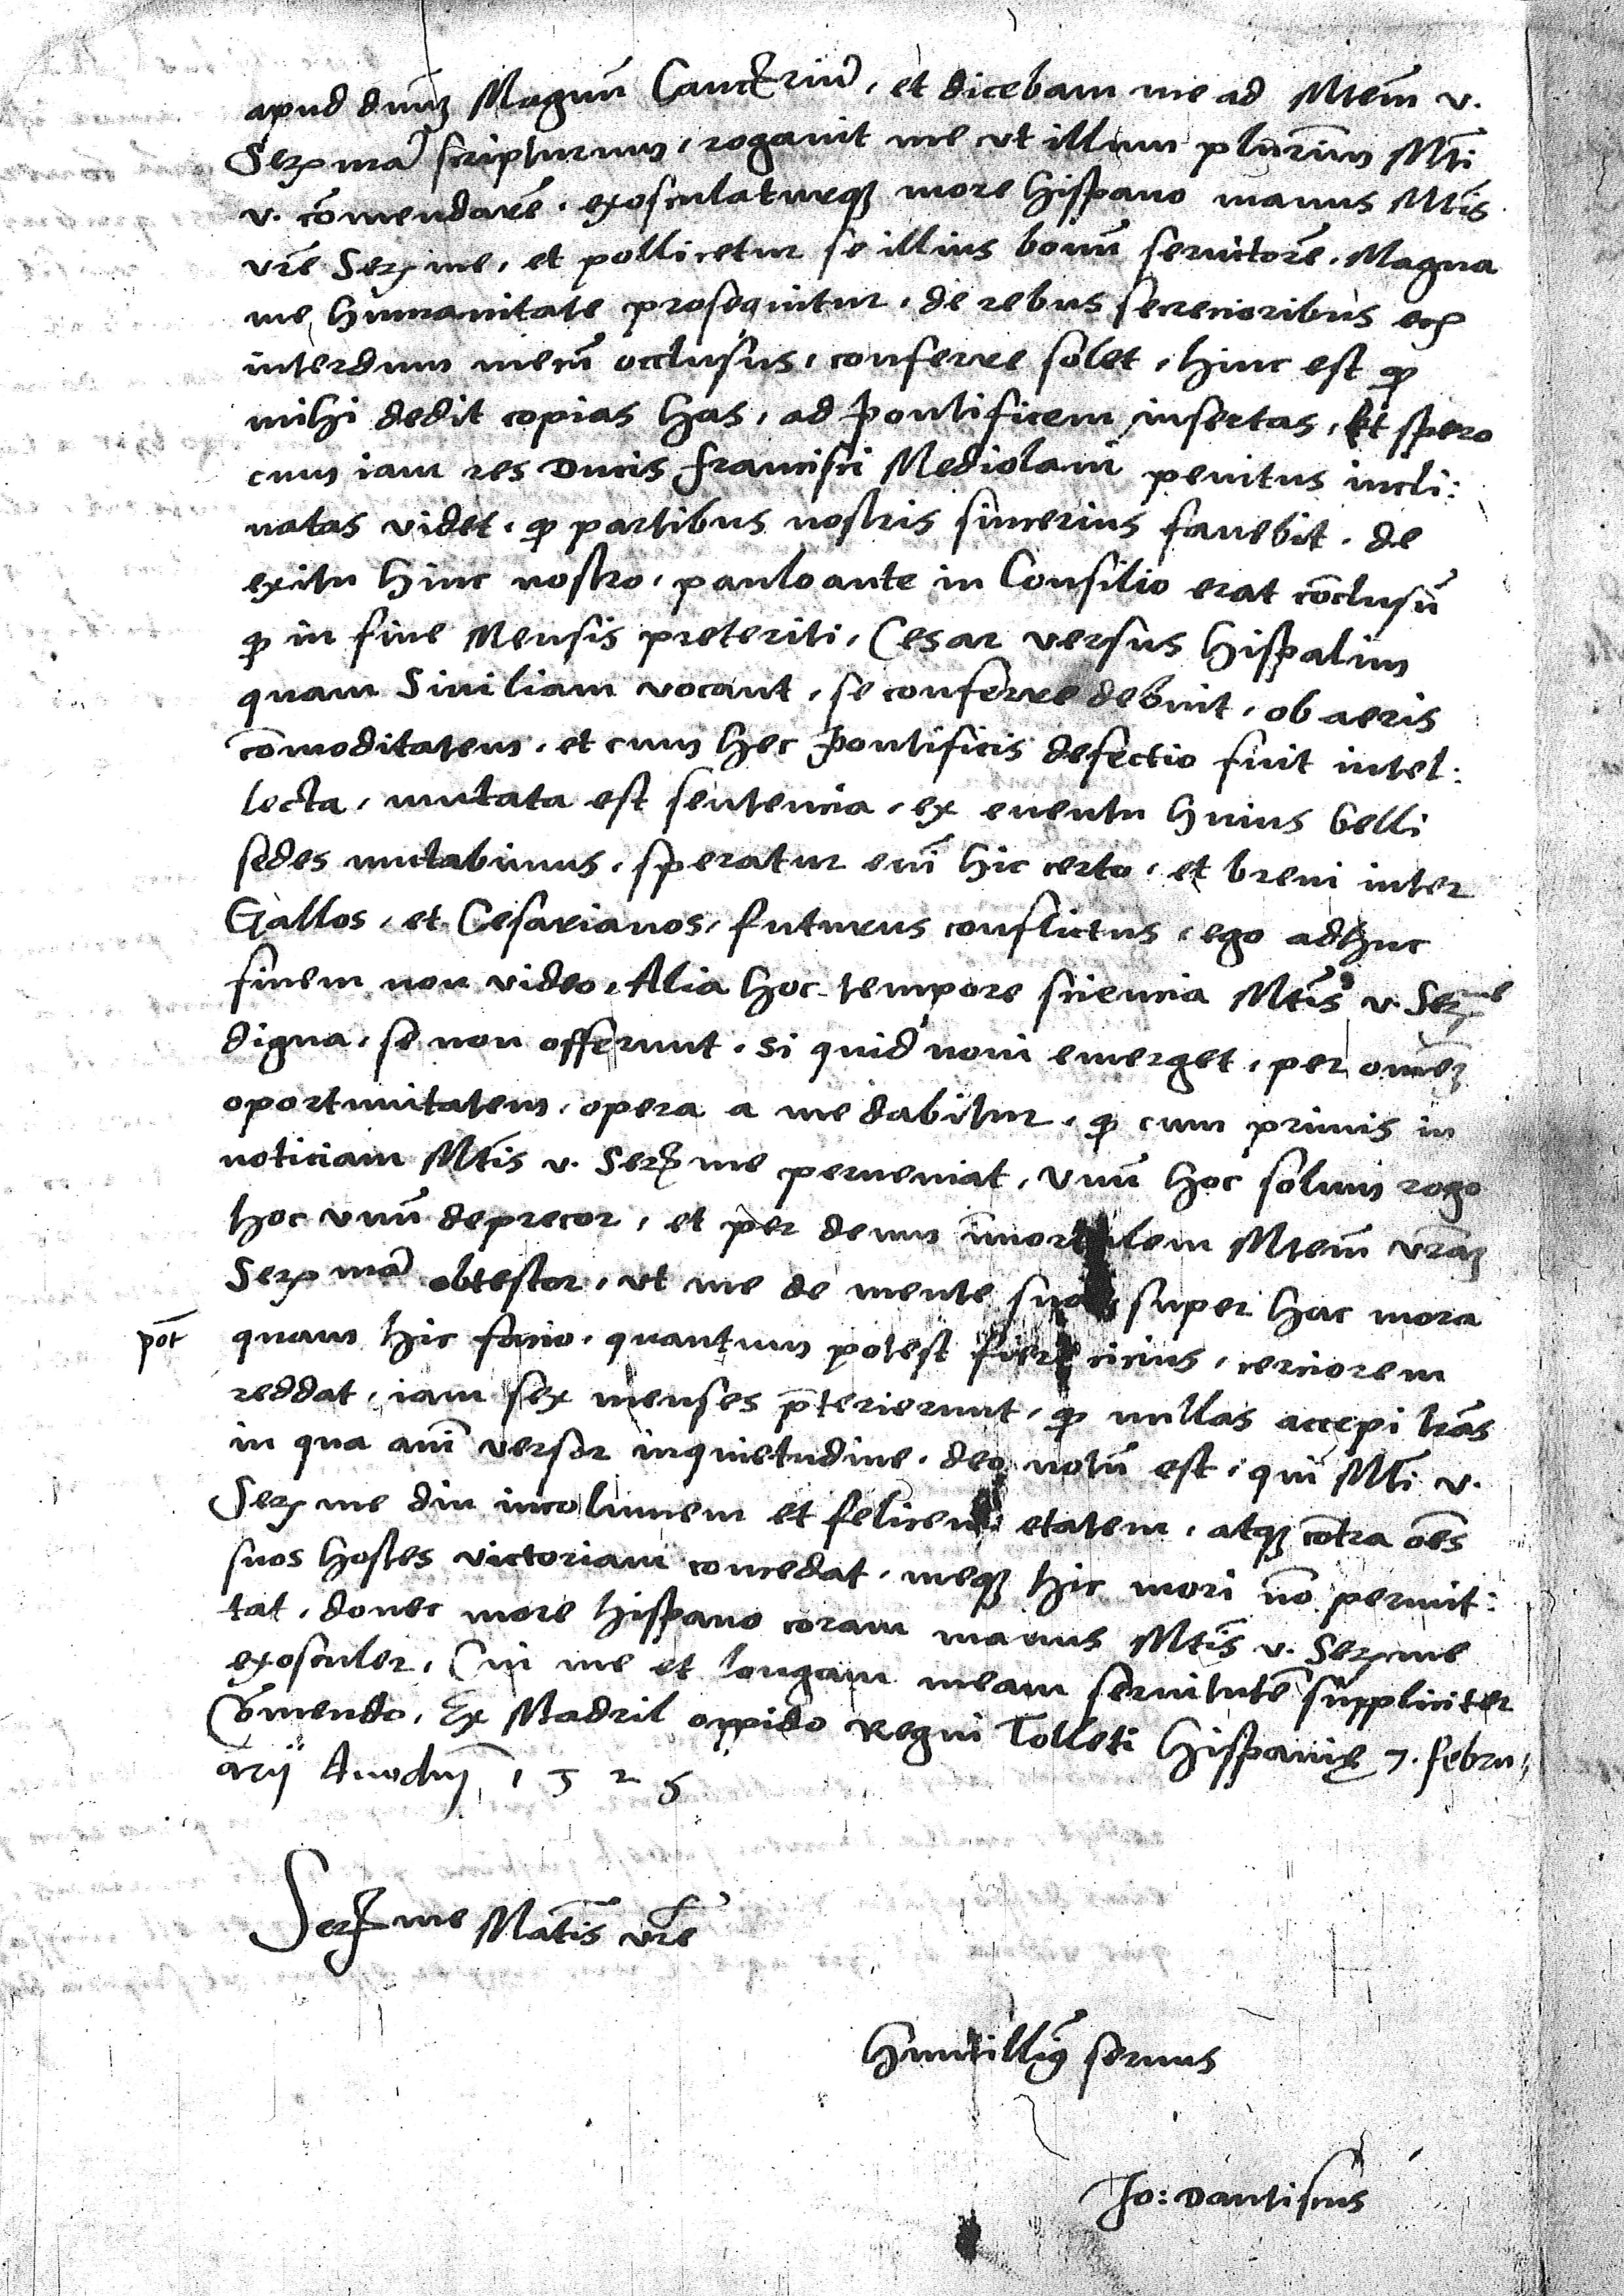 apud dnū Magnū Cancrīū, et dicebam me ad Mtem̄ v.
Serma᷎ scripturum, rogavit me vt illum plurimū Mti
v. cōmendarē, exosculaturq more hispano manus Mtis
vrē Serme, et pollicetur se illius bonū servitorē. Magna
me humanitate prosequitur, de rebus secrecioribus eciā
interdum mecū occlusus, conferre solet, hinc est ꝙ
mihi dedit copias has, ad pontificem insertas, Et spero
cum iam res Ducis francisci Mediolani penitus incli:
natas videt, ꝙ partibus nostris sincerius favebit. de
exitu hinc nostro, paulo ante in Consilio erat cōclusū
ꝙ in fine Mensis preteriti, Cesar versus hispalim
quam Siviliam vocant, se conferre debuit, ob aeris
cōmoditatem, et cum hec pontificis defectio fuit intel:
lecta, mutata est sentencia, ex eventu huius belli
sedes mutabimus, speratur enī hic certo, et brevi inter
Gallos, et Cesarianos, futurus conflictus, ego adhuc
finem non video, Alia hoc tempore sciencia Mtis v. Serme
digna, se non offerunt, si quid novi emerget, per omnē
oportunitatem, opera a me dabitur, ꝙ cum primis in
noticiam Mtis v. Serme perveniat, Vnū hoc solum rogo
hoc vnū deprecor, et per deum īmortalem Mtem̄ vrām
Sermā obtestor, vt me de mente sua super hac mora
pōt quam hic facio, quantum potest fieri cicius, cerciorem
reddat, iam sex menses p̄terierunt, ꝙ nullas accepi lrās
in qua anī versor inquietudine, deo notū est, qui Mti v.
Serme diu incolumem et felicem etatem, atq cōtra oēs
suos hostes victoriam concedat, meq hic mori nō permit:
tat, donec more hispano coram manus Mtis v. Serme
exosculer, Cui me et longam meam servitutē suppliciter
Cōmendo, Ex Madril oppido Regni Tolleti Hispanię 7. febru,
arij Anodnj 1525
Serme Matis vrē
humillimꝰ servus
Jo: Dantiscus